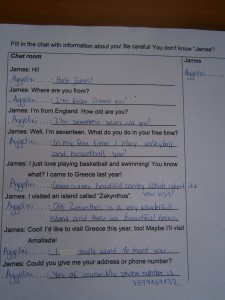 Fill in the chat with information about you! Be careful! You don't know "James"!
Chat room
James
James: Hi!
Aggeliki
James: Where are you from?
Aggeliki: I'm from
James: I'm from England. How old are you?
Aggeliki: I'm years old you?
James: Well, I'm seventeen. What do you do in your free time?
Aggeliki: In my free time I play volleyball
and basketball you?
James: I just love playing basketball and swimming! You know
what? I came to Greece last year!
Aggeliki: Greece is very beautiful country
you visit?
James: I visited an island called "Zakynthos".
Aggeliki: Ohh Zakynthos is a very wonderful
island and
James: Cool! I'd like to visit Greece this year, too! Maybe I'll visit
Amaliada!
Aggeliki: I really want to meet you
James: Could you give me your address or phone number?
Aggeliki: Yes of course my phone number is